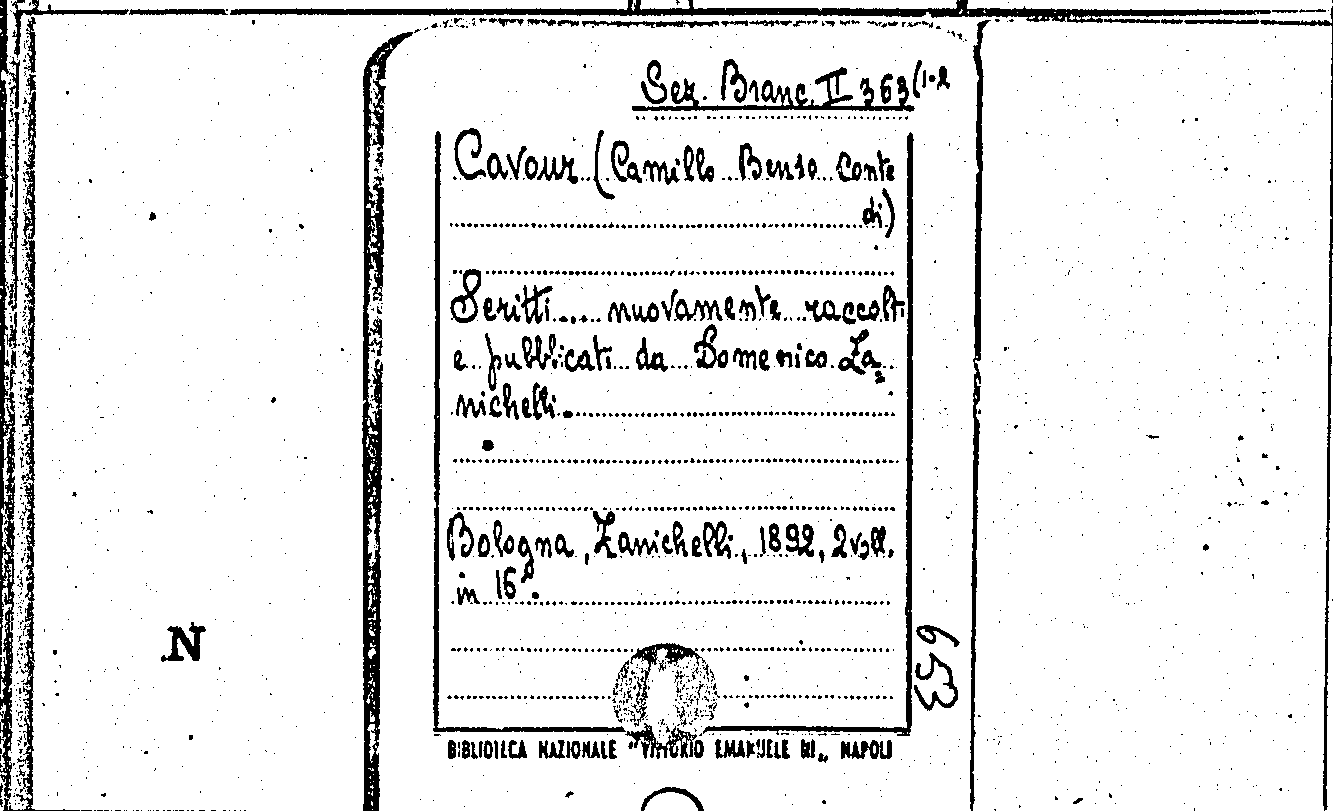 Sez. Branc. II 363(1-2
Cavour (Camillo Benso conte
di)
Scritti.... nuovamente raccolti
e pubblicati da Domenico Za=
nichelli.
Bologna, Zanichelli, 1892, 2 voll.
in 16°.
N
653
BIBLIOTECA NAZIONALE "VITTORIO EMANUELE III„ NAPOLI